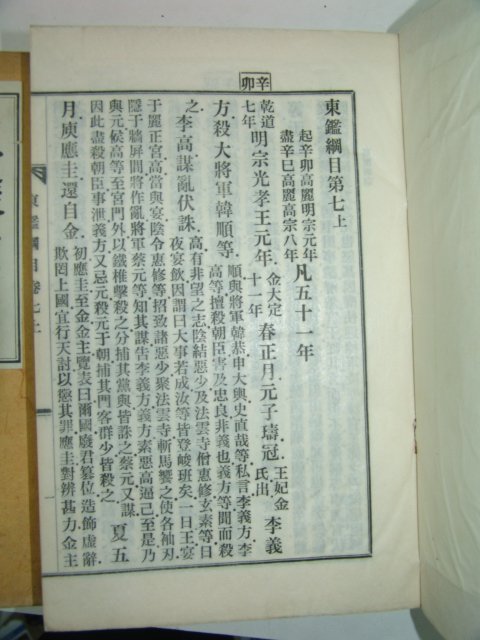 辛卯
東鑑綱目第七上
起辛卯高麗明宗元年
盡辛巳高麗高宗八年
凡五十一年
乾道七年
明宗光孝王元年
金大定十一年
春正月元子璹冠
王妃金氏出
李義
方殺大將軍韓順等
順與將軍韓恭申大輿史直哉等私言李義方李
高等擅殺朝臣害及忠良非義也義方等聞而殺
之
李高謀亂伏誅
高有非望之志陰結惡少及法雲寺僧惠修玄素等日
夜宴飲因謂曰大事若成汝等皆登峻班矣一日王宴
于麗正宮高當與宴陰令惠修等招致諸惡少聚法雲寺斬馬饗之使各袖刃
隱于牆屛間將作亂將軍蔡元等知其謀告李義方義方素惡高逼己至是乃
與元候高等至宮門外以鐵椎擊殺之分捕其黨與皆誅之蔡元又謀
因此盡殺朝臣事泄義方又忌元殺元于朝捕其門客群少皆殺之
夏五
月庾應圭還自金
初應圭至金金主覽表曰爾國廢君篡位造飾虛辭
欺罔上國宜行天討以懲其罪應圭對辨甚力金主
東鑑綱目卷七上